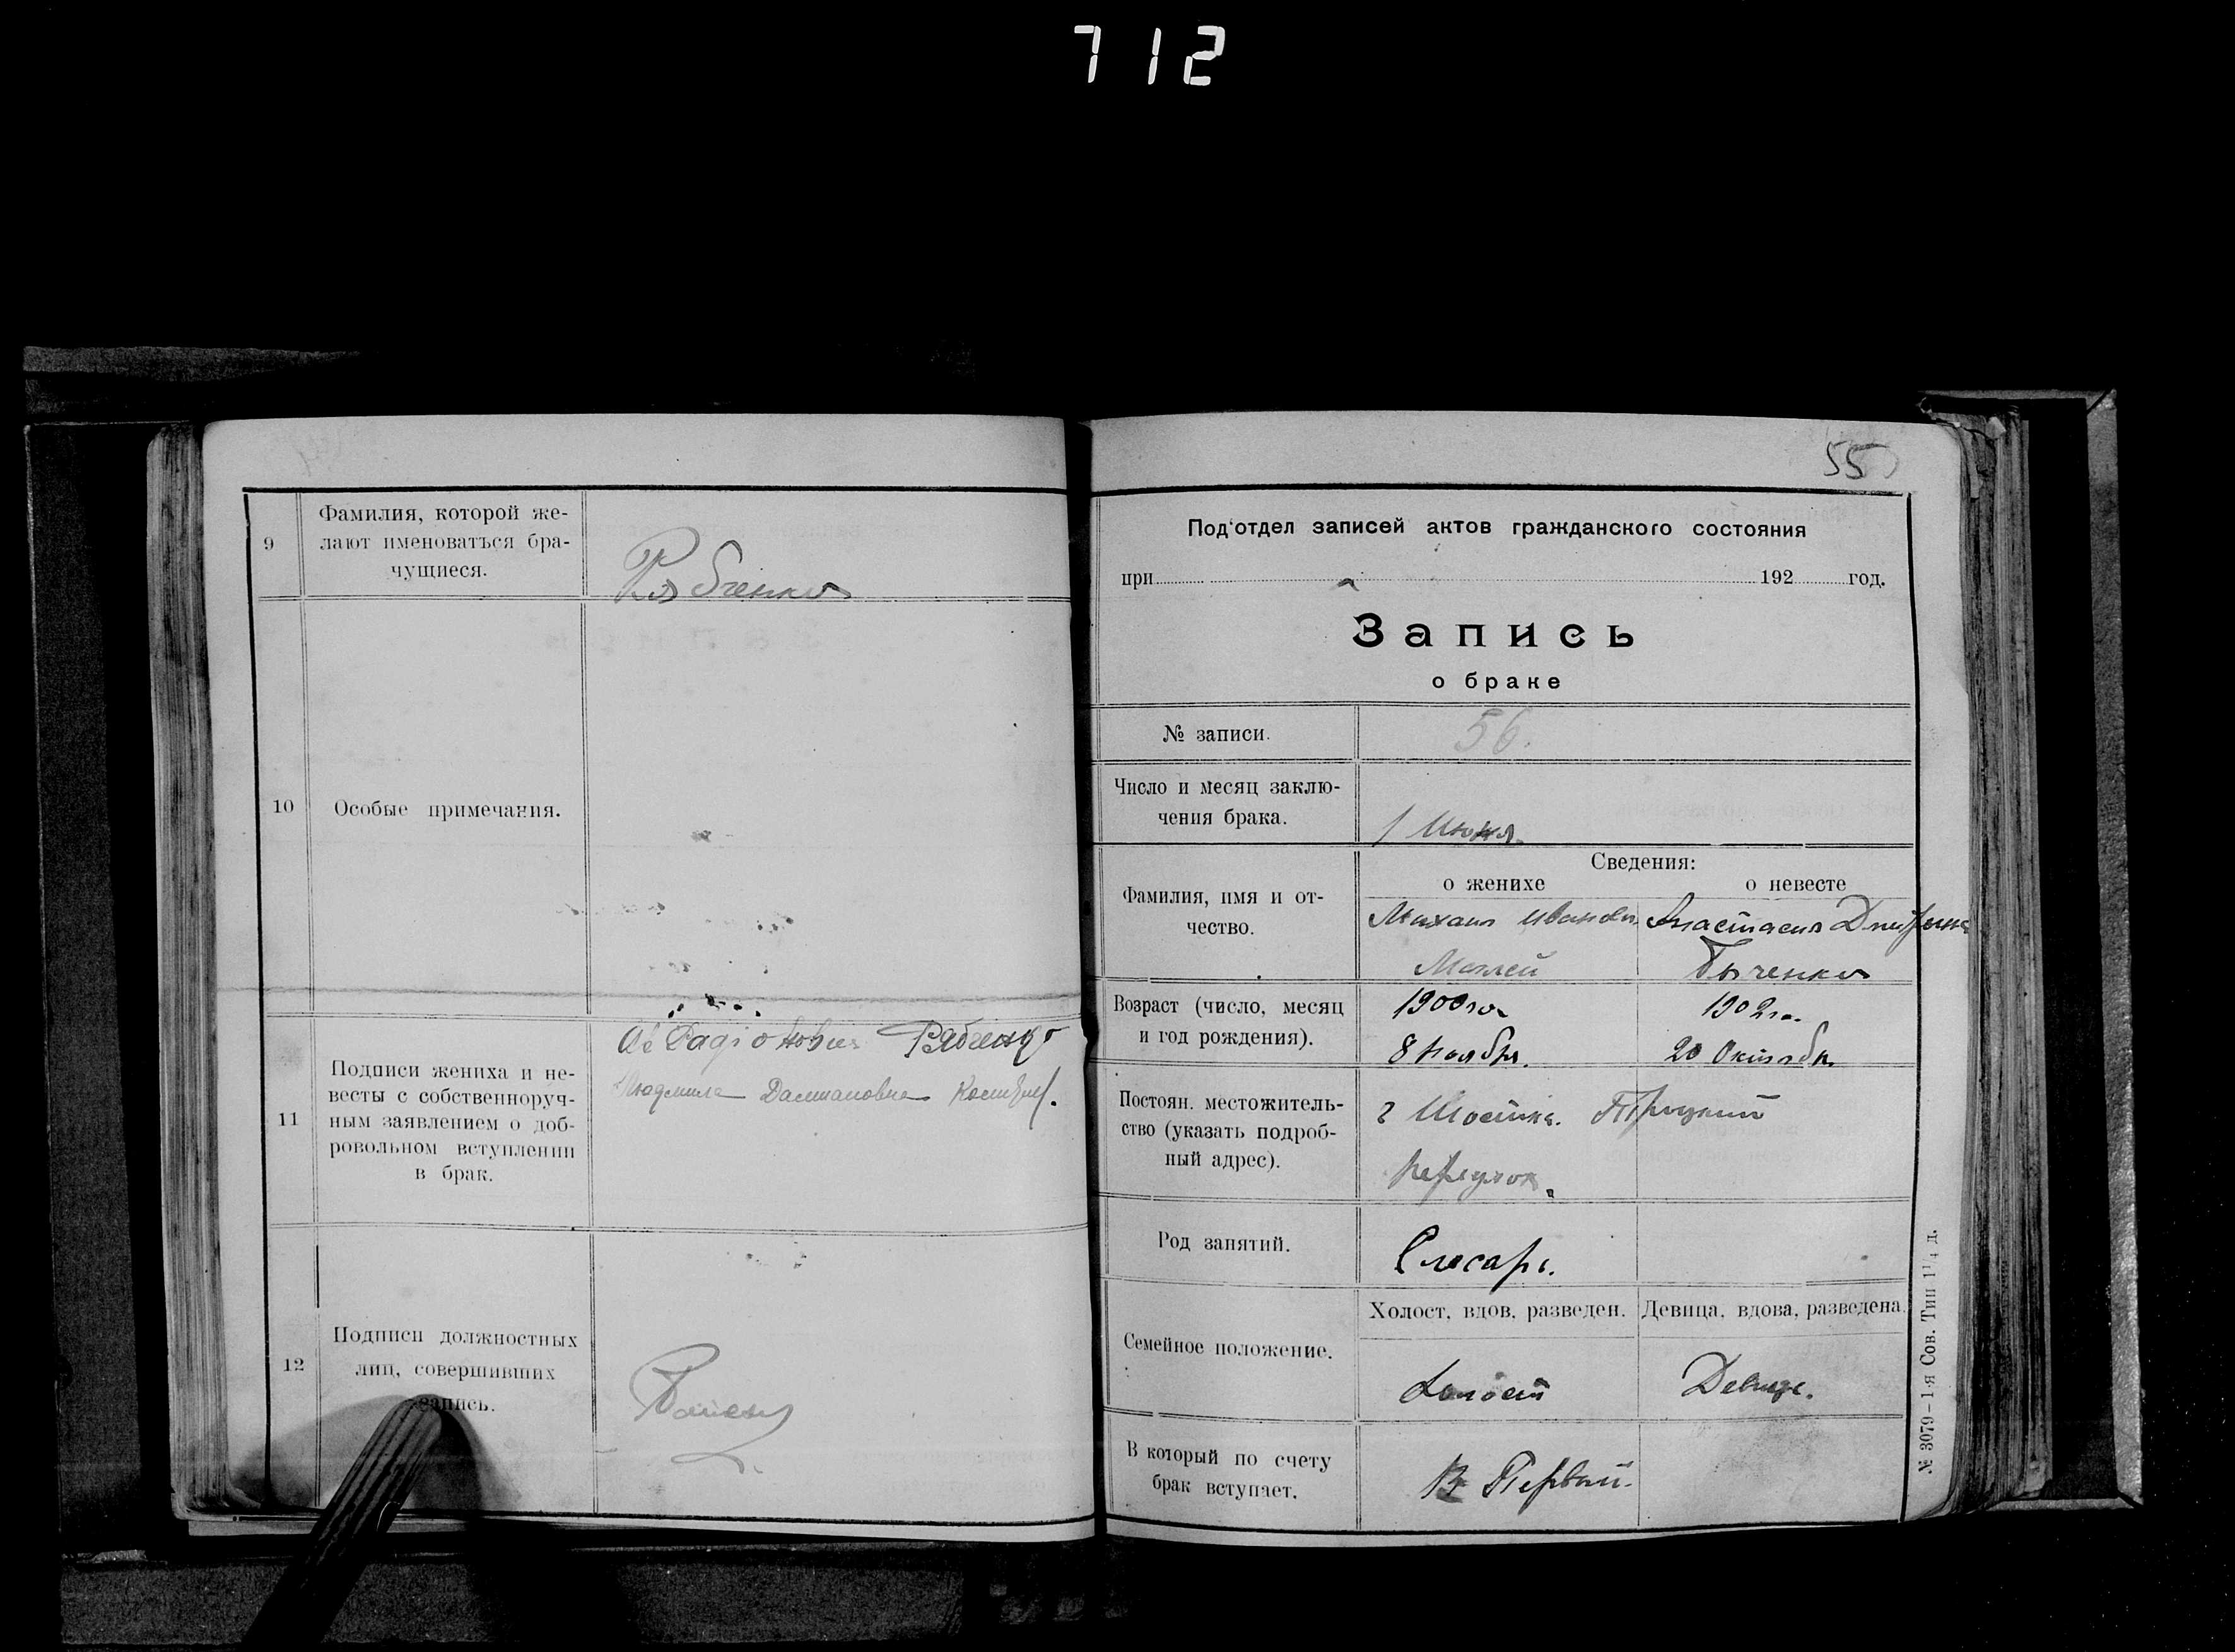 712
9
Фамилия, которой же-
лают именоваться бра-
чущиеся.
Рябченко
10
Особые примечания.
11
Подписи жениха и не-
весты с собственноруч-
ным заявлением о доб-
ровольном вступлении
в брак.
Рябченко
Людмила Дамиановна
12
Подписи должностных
лиц, совершивших
запись.
55
Под'отдел записей актов гражданского состояния
при 192 год.
Запись
о браке
№ записи.
56.
Число и месяц заклю-
чения брака.
1 Июня.
Сведения:
о женихе
о невесте
Фамилия, имя и от-
чество.
Михаил Иванов.
Анастасия
Быченко
Возраст (число, месяц
и год рождения).
1900го
8 Ноября.
1902го.
20 Октября.
Постоян. местожитель-
ство (указать подроб-
ный адрес).
г Шостка.
переулок.
Род занятий.
Слесарь.
Семейное положение.
Холост, вдов, разведен.
Девица, вдова, разведена.
Холост
Девица.
В который по счету
брак вступает.
В Первый.
№ 3079–1-я Сов. Тип 1¹/₄ д.